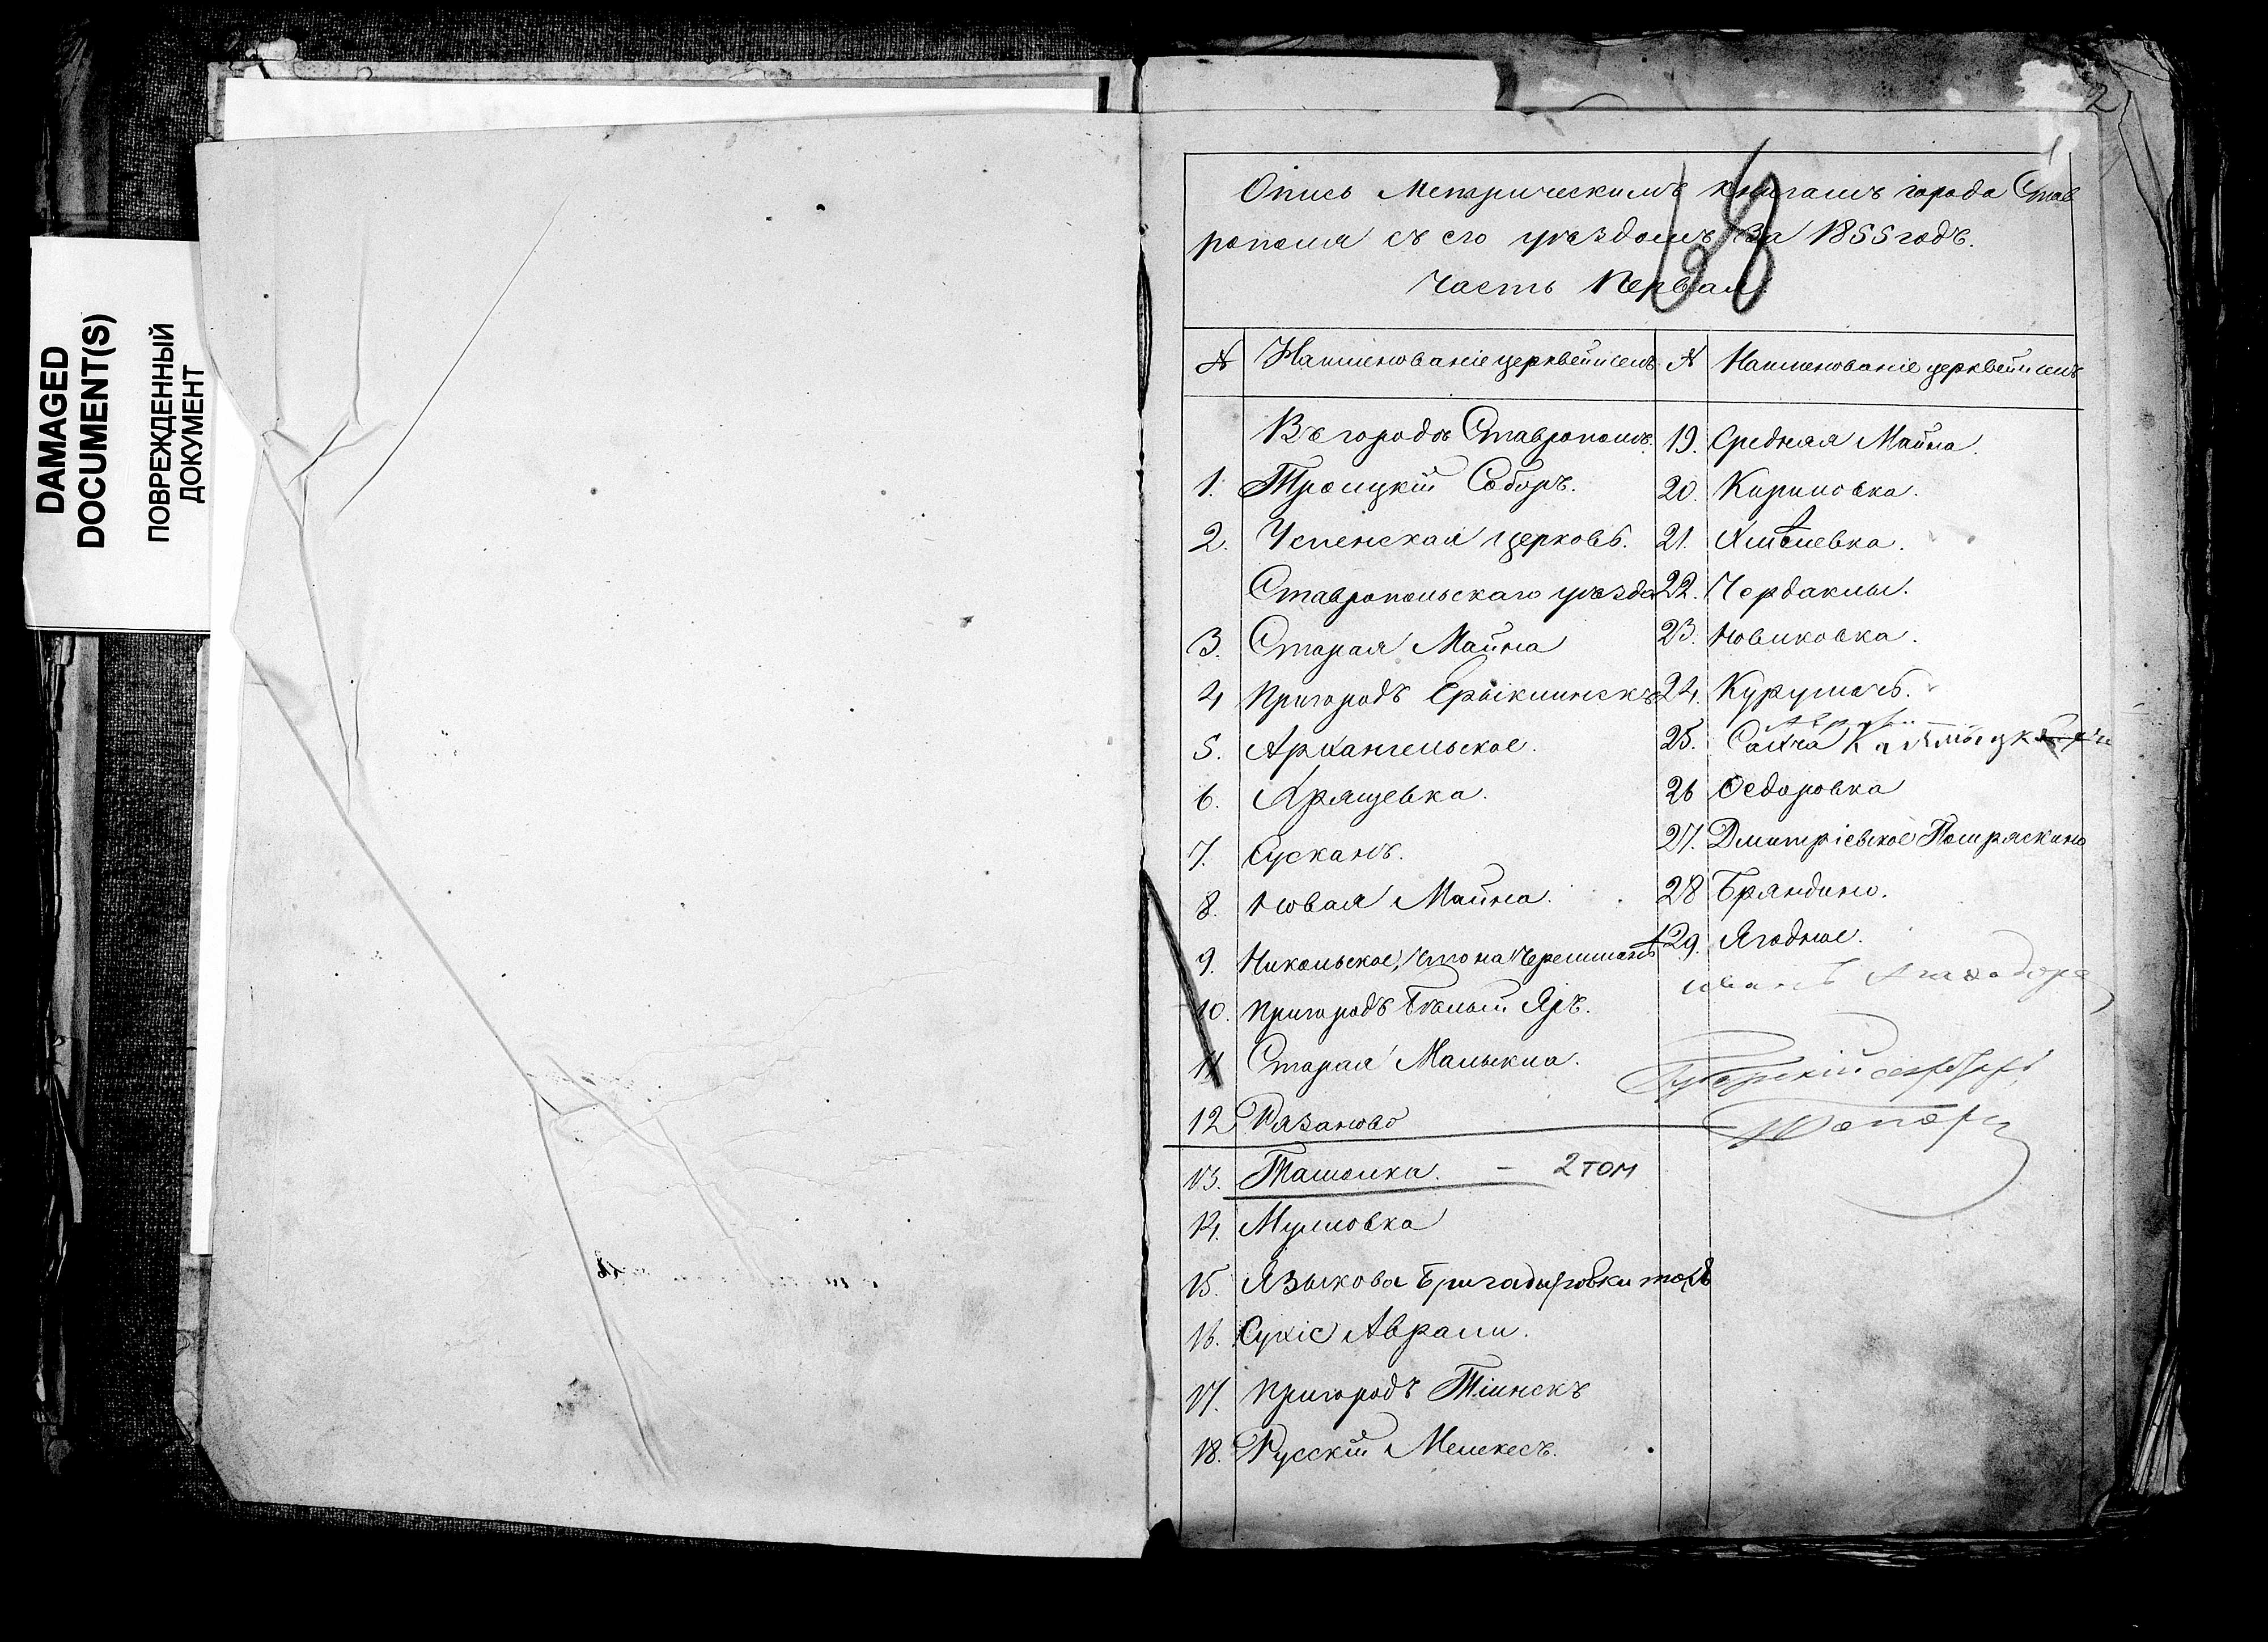 DAMAGED
DOCUMENT(S)
ПОВРЕЖДЕННЫЙ
ДОКУМЕНТ
2
1
Опись Метрическимъ книгамъ города Став
рополя съ его уѣздомъ за 1855 годъ.
Часть Первая.
№ Наименованіе церквей и селъ
Въ городѣ Ставрополѣ.
1. Троицкій Соборъ.
2. Успенская церковь.
Ставропольскаго уѣзда
3. Старая Майна
4 Пригородъ Ерыклинскъ
5. Архангельское.
6. Хрящевка.
7. Сусканъ.
8. Новая Майна.
9. Никольское, что на Черемшанѣ
10. Пригородъ Бѣлый Яръ.
11 Старая Малыкла.
12 Рязаново
13. Ташолка. – 2 том
14. Мулловка
15. Языкова Бригадировки тожъ
16. Сухіе Аврали.
17. Пригородъ Тіинскъ
18. Русскій Мелекесъ.
№ Наименованіе церквей и селъ
19. Средняя Майна.
20. Кириловка.
21. Хмѣлевка.
22. Чердаклы.
23. Новиковка.
24. Курумочь.
25. Сахча
26 Ѳедоровка
27. Дмитріевское Помряскино
28 Бряндино.
29. Ягодное.